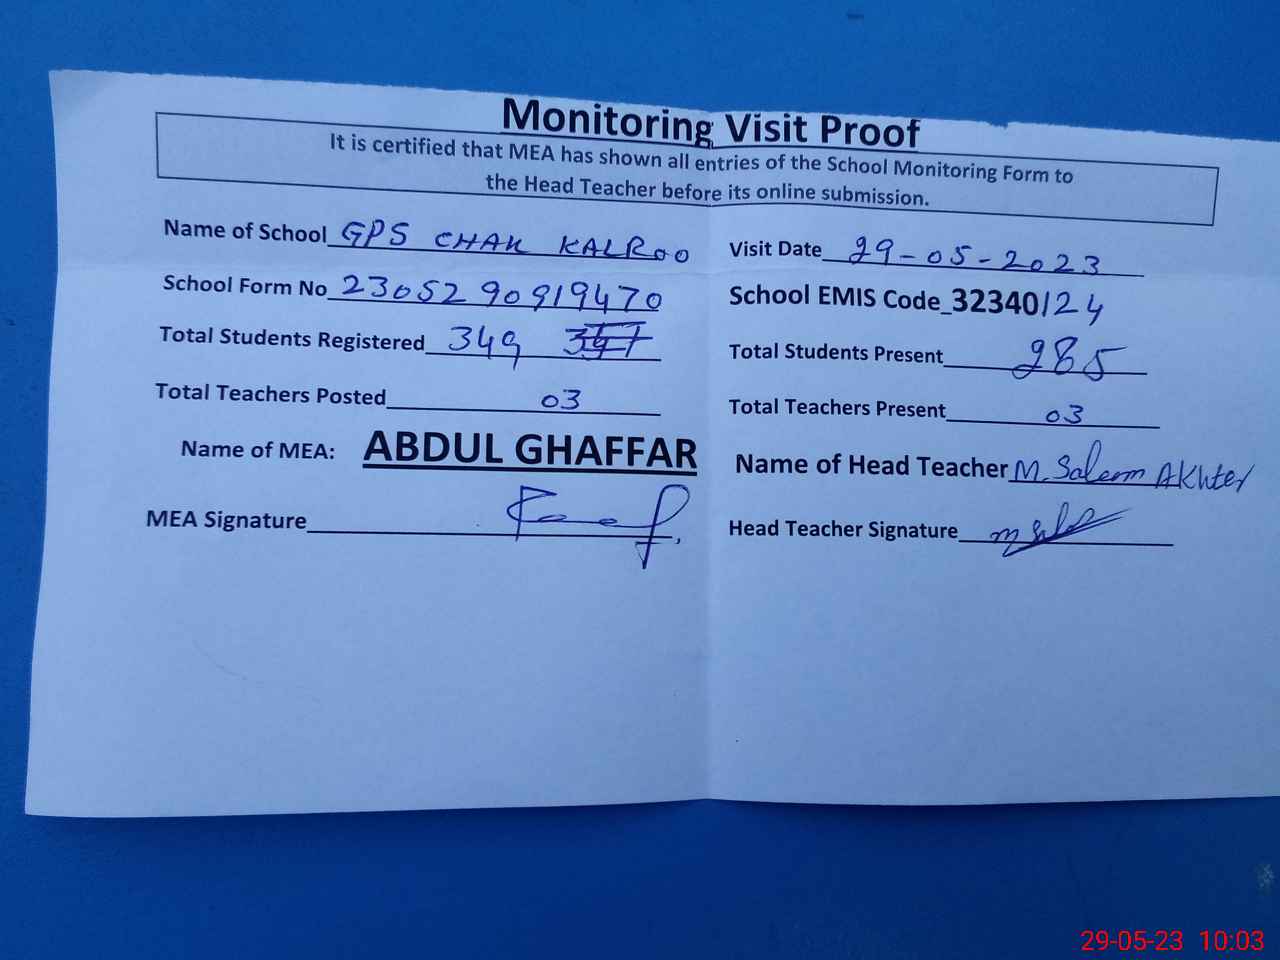 Monitoring Visit Proof
It is certified that MEA has shown all entries of the School Monitoring Form to
the Head Teacher before its online submission.
Name of School GPS CHAK KALROO
Visit Date 29-05-2023
School Form No 2305290919470
School EMIS Code_32340/24
Total Students Registered 349
Total Students Present 285
Total Teachers Posted 03
Total Teachers Present 03
Name of MEA: ABDUL GHAFFAR
Name of Head Teacher M. Saleem Akhter
MEA Signature
Head Teacher Signature
29-05-23 10:03